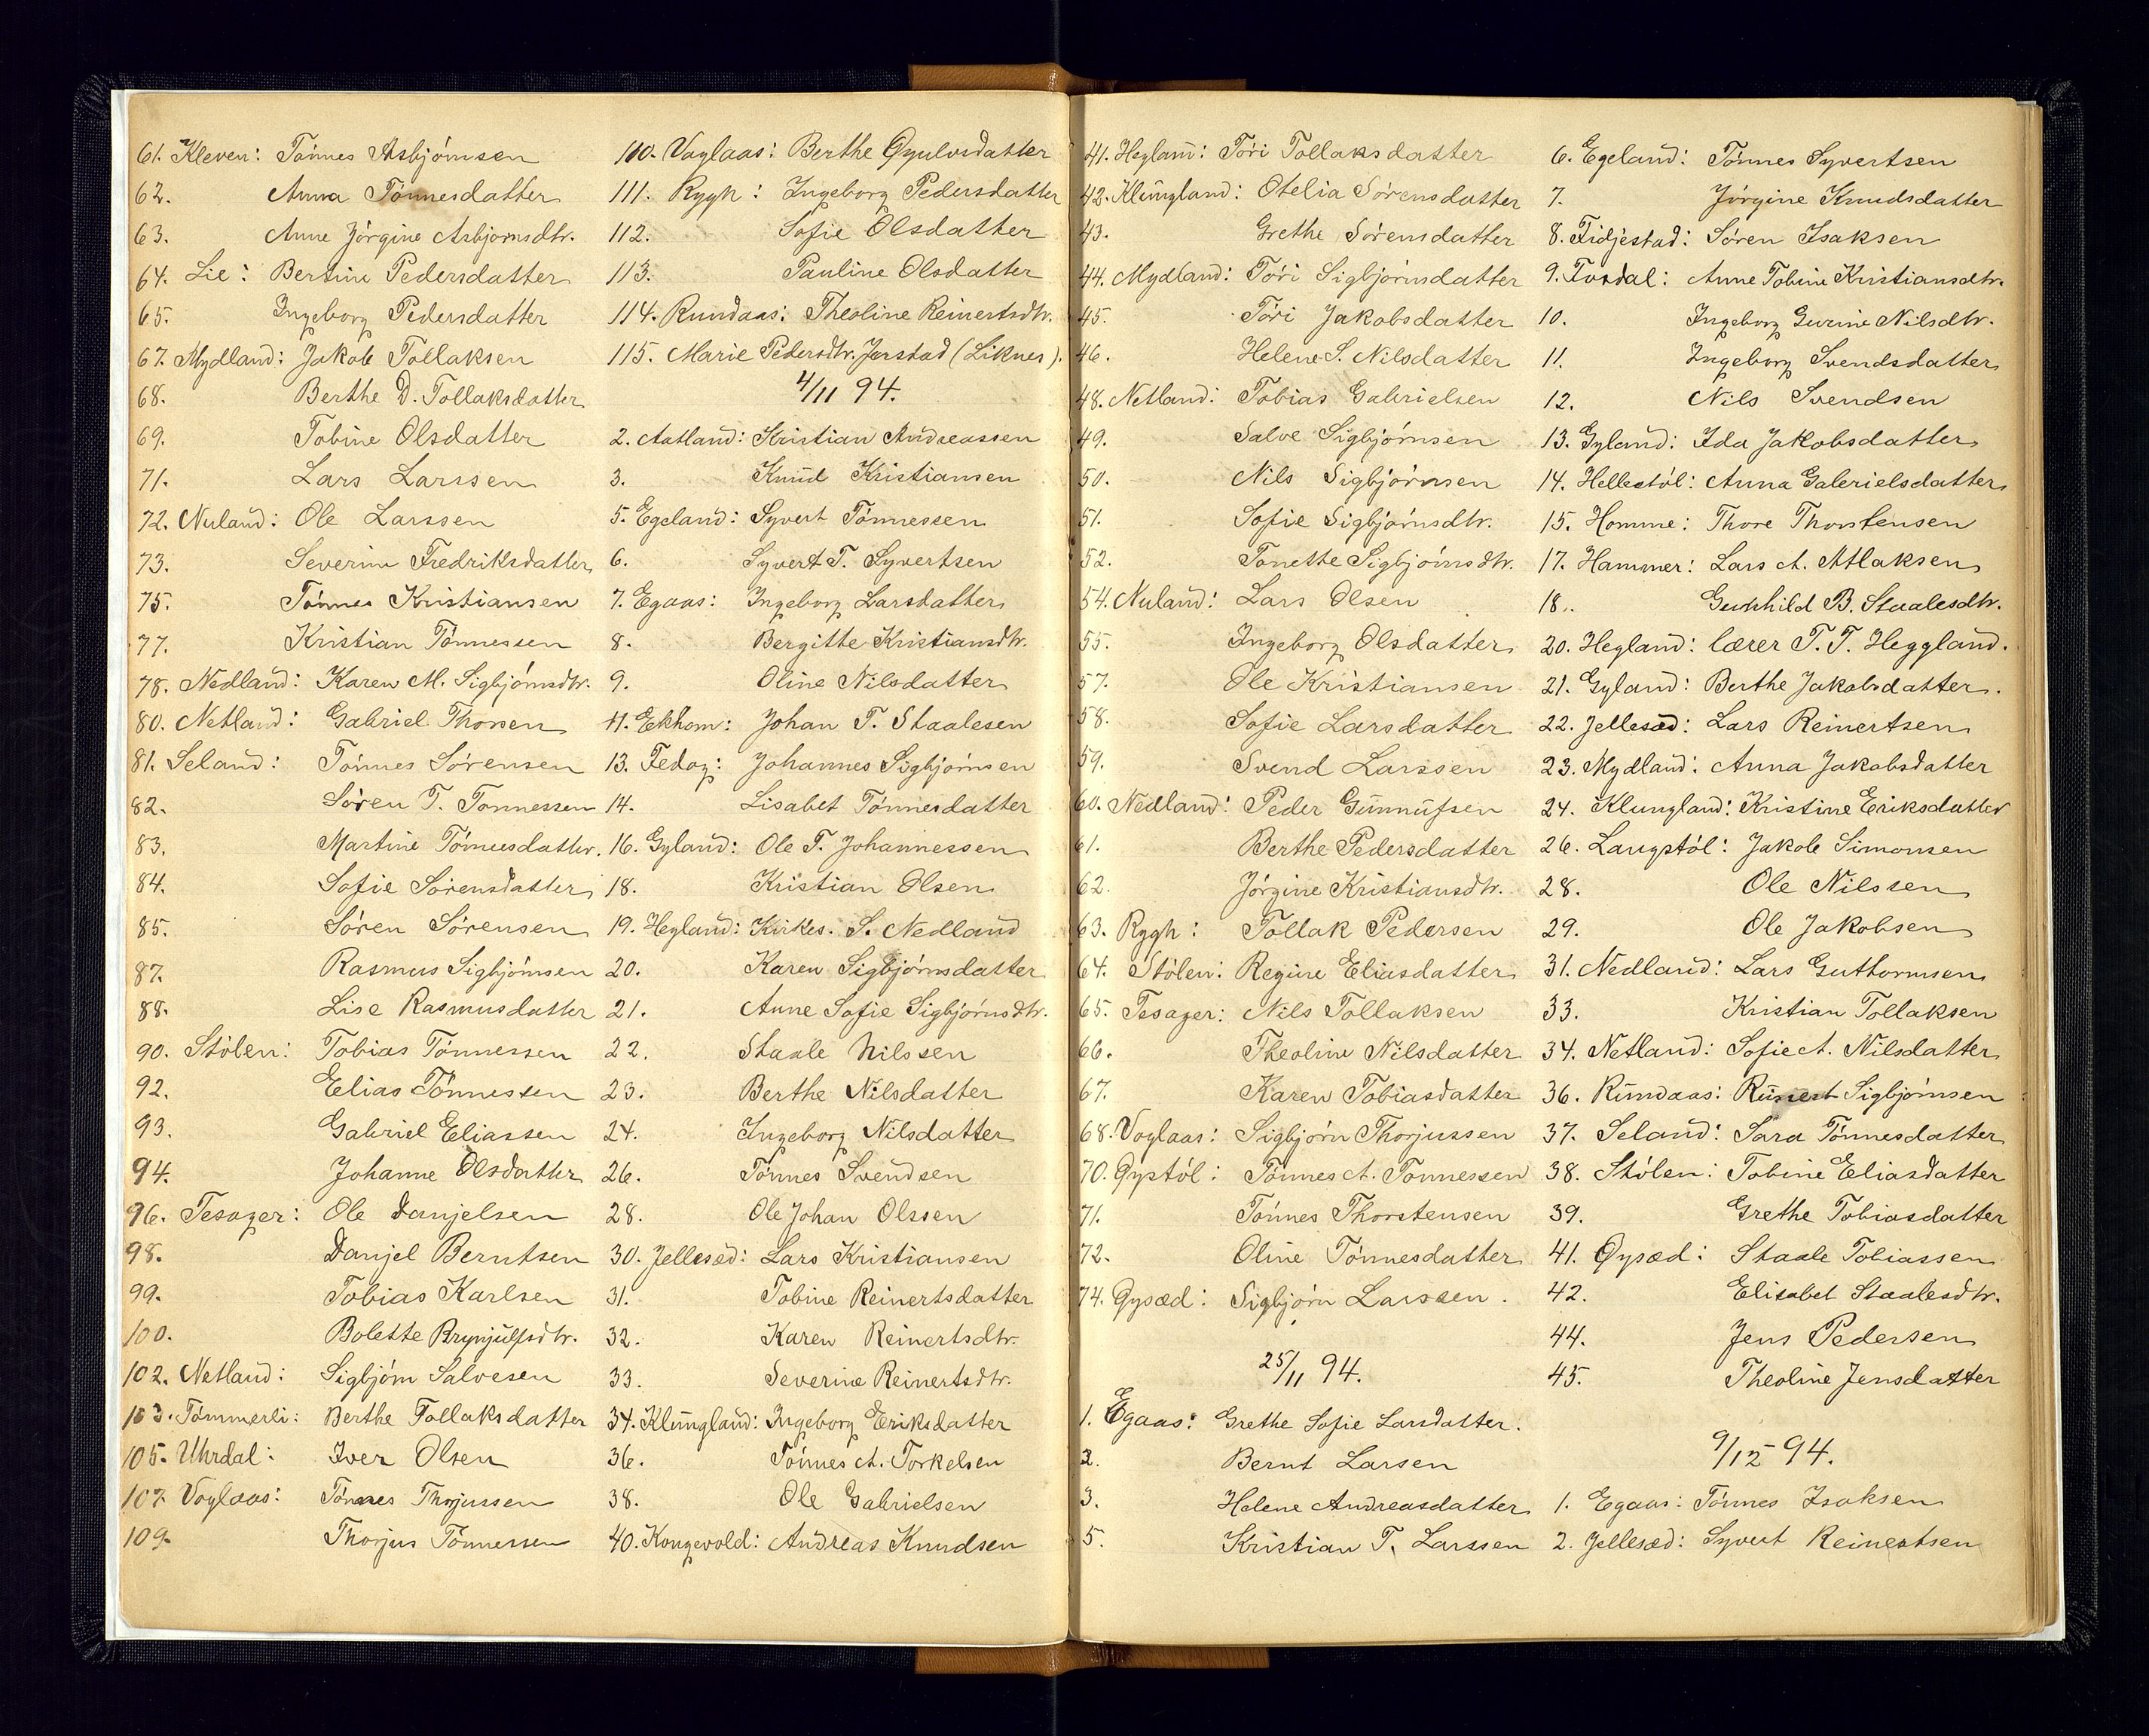 61. Kleven: Tönnes Asbjörnsen
62. Anna Tönnesdatter
63. Anne Jörgine Asbjörnsdtr.
64. Lie: Bertine Pedersdatter
65. Ingeborg Pedersdatter
67. Mydland: Jakob Tollaksen
68. Berthe D. Tollaksdatter
69. Tobine Olsdatter
71. Lars Larssen
72. Nuland: Ole Larssen
73. Severine Fredriksdatter
75. Tönnes Kristiansen
77. Kristian Tönnessen
78. Nedland: Karen M. Sigbjörnsdtr.
80. Netland: Gabriel Thorsen
81. Seland: Tönnes Sörensen
82. Sören T. Tönnessen
83. Martine Tönnesdatter.
84. Sofie Sörensdatter
85. Sören Sörensen
87. Rasmus Sigbjörnsen
88. Lise Rasmusdatter
90. Stölen: Tobias Tönnessen
92. Elias Tönnessen
93. Gabriel Eliassen
94. Johanne Olsdatter
96. Tesager: Ole Danjelsen
98. Danjel Berntsen
99. Tobias Karlsen
100. Bolette Brynjulfsdtr.
102. Netland: Sigbjörn Salvesen
103. Tömmerli: Berthe Tollaksdatter
105. Uhrdal: Iver Olsen
107. Voglaas: Tönnes Thorjussen
109. Thorjus Tönnessen
110. Voglaas: Berthe Øyulvsdatter
111. Rygh: Ingeborg Pedersdatter
112. Sofie Olsdatter
113. Pauline Olsdatter
114. Rundaas: Theoline Reinertsdtr.
115. Marie Pedersdtr. Jerstad (Liknes).
4/11 94.
2. Aatland: Kristian Andreassen
3. Knud Kristiansen
5. Egeland: Syvert Tönnessen
6. Syvert T. Syvertsen
7. Egaas: Ingeborg Larsdatter
8. Bergitte Kristiansdtr.
9. Oline Nilsdatter
11. Eekhom: Johan T. Staalesen
13. Fedog: Johannes Sigbjörnsen
14. Lisabet Tönnesdatter
16. Gyland: Ole T. Johannessen
18. Kristian Olsen
19. Hegland: Kirkes. S. Nedland
20. Karen Sigbjörnsdatter
21. Anne Sofie Sigbjörnsdtr.
22. Staale Nilssen
23. Berthe Nilsdatter
24. Ingeborg Nilsdatter
26. Tönnes Svendsen
28. Ole Johan Olssen
30. Jellesæd: Lars Kristiansen
31. Tobine Reinertsdatter
32. Karen Reinertsdtr.
33. Severine Reinertsdtr.
34. Klungland: Ingeborg Eriksdatter
36. Tönnes A. Torkelsen
38. Ole Gabrielsen
40. Kongevold: Andreas Knudsen
41. Hegland: Töri Tollaksdatter
42. Klungland: Otelia Sörensdatter
43. Grethe Sörensdatter
44. Mydland: Töri Sigbjörnsdatter
45. Töri Jakobsdatter
46. Helene S. Nilsdatter
48. Netland: Tobias Gabrielsen
49. Salve Sigbjörnsen
50. Nils Sigbjörnsen
51. Sofie Sigbjörnsdtr.
52. Tonette Sigbjörnsdtr.
54. Nuland: Lars Olsen
55. Ingeborg Olsdatter
57. Ole Kristiansen
58. Sofie Larsdatter
59. Svend Larssen
60. Nedland: Peder Gunnufsen
61. Berthe Pedersdatter
62. Jörgine Kristiansdtr.
63. Rygh: Tollak Pedersen
64. Stölen: Regine Eliasdatter
65. Tesager: Nils Tollaksen
66. Theoline Nilsdatter
67. Karen Tobiasdatter
68. Voglaas: Sigbjörn Thorjussen
70. Øystöl: Tönnes A. Tönnessen
71. Tönnes Thorstensen
72. Oline Tönnesdatter
74. Øysæd: Sigbjörn Larssen.
25/11 94.
1. Egaas: Grethe Sofie Larsdatter.
2. Bernt Larsen
3. Helene Andreasdatter
5. Kristian T. Larssen
6. Egeland: Tönnes Syvertsen
7. Jörgine Knudsdatter
8. Fidjestad: Sören Isaksen
9. Fosdal: Anne Tobine Kristiansdtr.
10. Ingeborg Gurine Nilsdtr.
11. Ingeborg Svendsdatter
12. Nils Svendsen
13. Gyland: Ida Jakobsdatter
14. Hellestöl: Anna Gabrielsdatter
15. Homme: Thore Thorstensen
17. Hammer: Lars A. Atlaksen
18. Gunhild B. Staalesdtr.
20. Hegland: lærer T. T. Heggland.
21. Gyland: Berthe Jakobsdatter.
22. Jellesæd: Lars Reinertsen
23. Mydland: Anna Jakobsdatter
24. Klungland: Kristine Eriksdatter
26. Langstöl: Jakob Simonsen
28. Ole Nilssen
29. Ole Jakobsen
31. Nedland: Lars Guttormsen
33. Kristian Tollaksen
34. Netland: Sofie A. Nilsdatter
36. Rundaas: Reinert Sigbjörnsen
37. Seland: Sara Tönnesdatter
38. Stölen: Tobine Eliasdatter
39. Grethe Tobiasdatter
41. Øysæd: Staale Tobiassen
42. Elisabet Staalesdtr.
44. Jens Pedersen
45. Theoline Jensdatter
9/12 94.
1. Egaas: Tönnes Isaksen
2. Jellesæd: Syvert Reinertsen